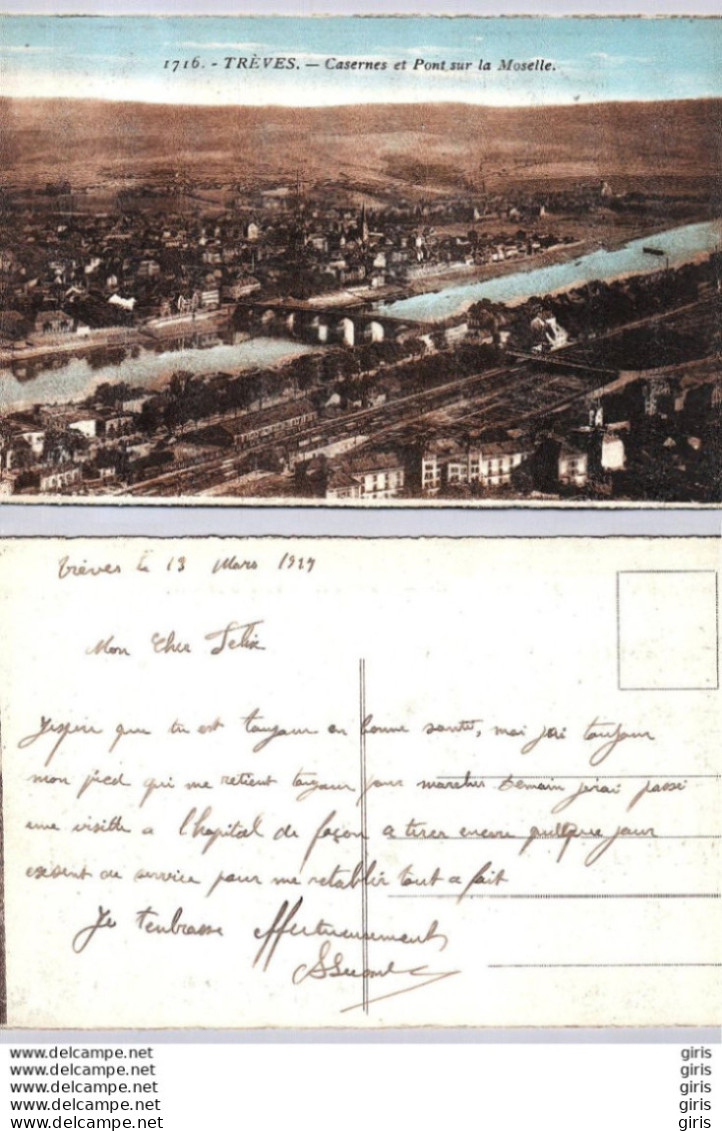 1716. - TRÈVES. — Casernes et Pont sur la Moselle.
Trèves le 13 Mars 1927
Mon Cher Felix
J'espère que tu est toujour en bonne santé, moi j'ai toujour
mon pied qui me retient toujour pour marcher Demain j'irai passé
une visitte a l'hopital de façon a tirer encore quelque jour
exsent de service pour me retablir tout a fait
Je t'enbrasse affectueusement
www.delcampe.net giris
www.delcampe.net giris
www.delcampe.net giris
www.delcampe.net giris
www.delcampe.net giris